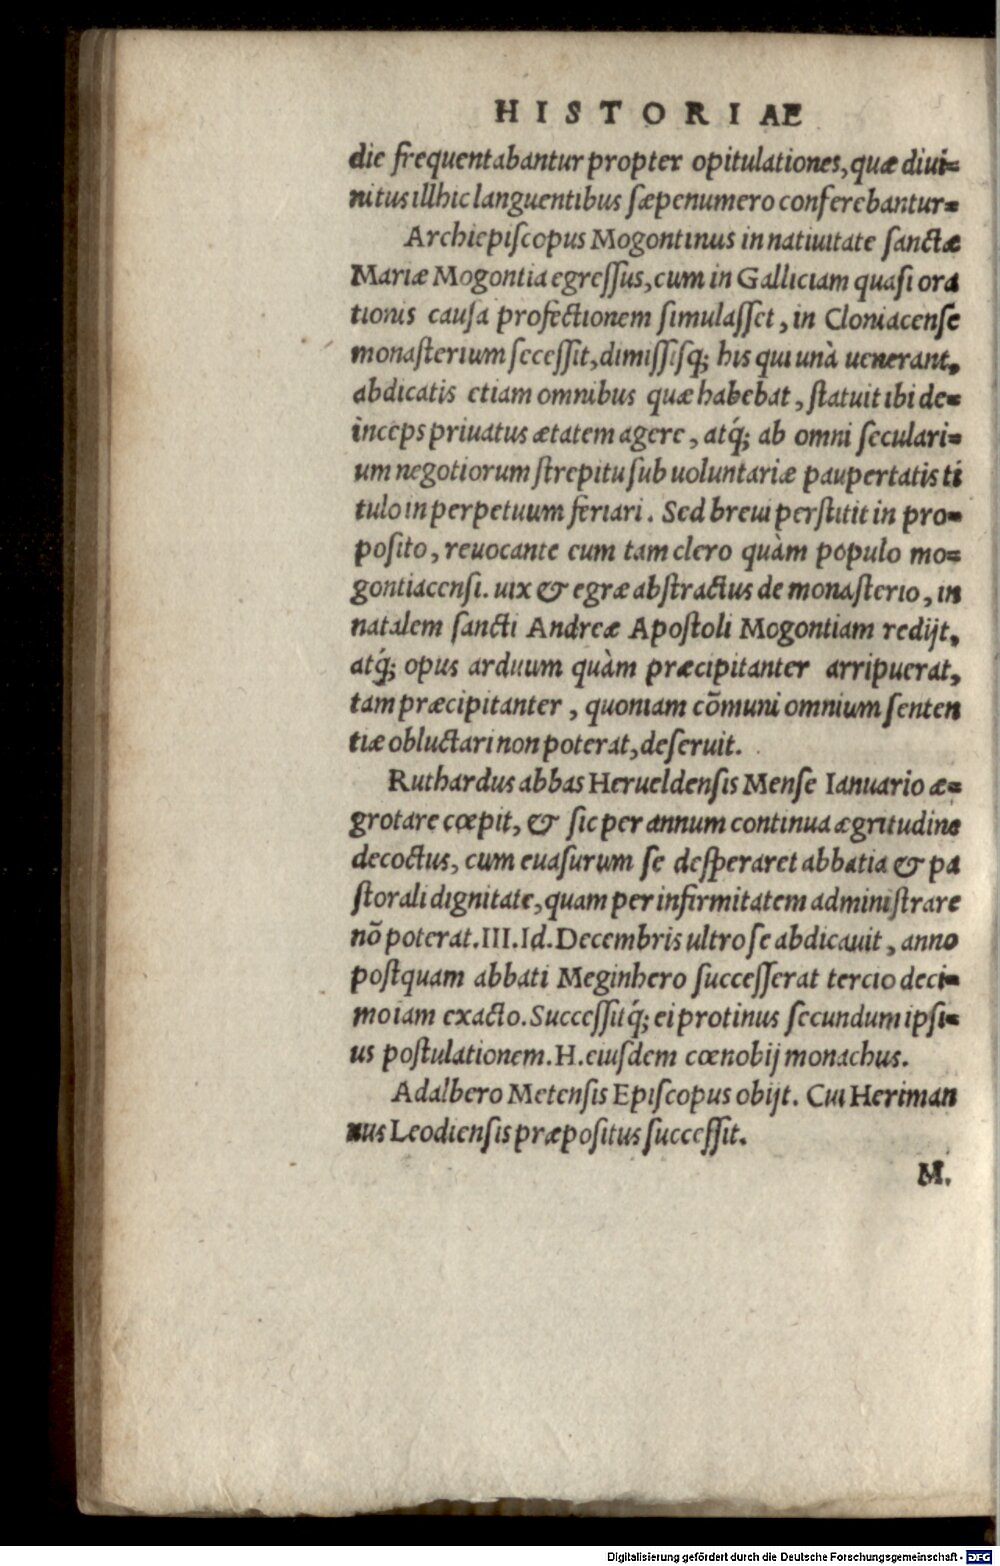 HISTORIAE
die frequentabantur propter opitulationes, quæ diui=
nitus illhic languentibus sæpenumero conferebantur=
Archiepiscopus Mogontinus in natiuitate sanctæ
Mariæ Mogontia egressus, cum in Galliciam quasi ora
tionis causa profectionem simulasset, in Cloniacense
monasterium secessit, dimissisq́; his qui unà uenerant,
abdicatis etiam omnibus quæ habebat, statuit ibi de=
inceps priuatus ætatem agere, atq́; ab omni seculari=
um negotiorum strepitu sub uoluntariæ paupertatis ti
tulo in perpetuum feriari. Sed breui perstitit in pro=
posito, reuocante eum tam clero quàm populo mo=
gontiacensi. uix & egræ abstractus de monasterio, in
natalem sancti Andreæ Apostoli Mogontiam redijt,
atq́; opus arduum quàm præcipitanter arripuerat,
tam præcipitanter, quoniam cõmuni omnium senten
tiæ obluctari non poterat, deseruit.
Ruthardus abbas Herueldensis Mense Ianuario æ=
grotare cœpit, & sic per annum continua ægritudine
decoctus, cum euasurum se desperaret abbatia & pa
storali dignitate, quam per infirmitatem administrare
nõ poterat. III. Id. Decembris ultro se abdicauit, anno
postquam abbati Meginhero successerat tercio deci=
mo iam exacto. Successitq́; ei protinus secundum ipsi=
us postulationem. H. eiusdem cœnobij monachus.
Adalbero Metensis Episcopus obijt. Cui Heriman
nus Leodiensis præpositus successit.
M.
Digitalisierung gefördert durch die Deutsche Forschungsgemeinschaft - DFG